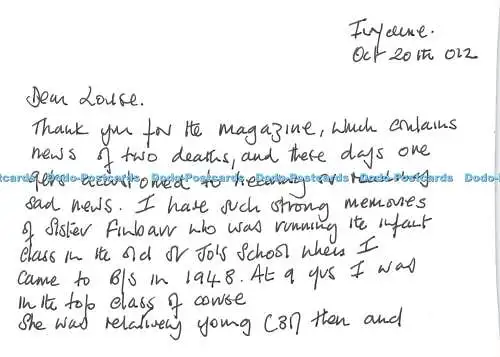 Ivydene.
Oct 20th 012
Dear Louise.
Thank you for the magazine, which contains
news of two deaths, and these days one
gets accustomed to hearing or reading
Dodo-Postcards Dodo-Postcards Dodo-Postcards Dodo-Postcards Dodo-Postcards
sad news. I have such strong memories
of Sister Finbarr who was running the infant
class in the old St Jo's School when I
came to B/s in 1948. At 9 yrs I was
in the top class of course
She was relatively young (38?) then and